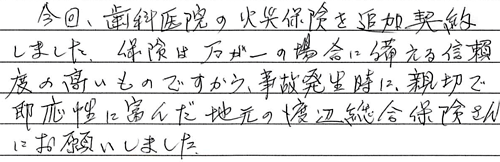 今回、歯科医院の火災保険を追加契約
しました。保険は万が一の場合に備える信頼
度の高いものですから、事故発生時に、親切で
即応性に富んだ地元の渡辺総合保険さん
にお願いしました。